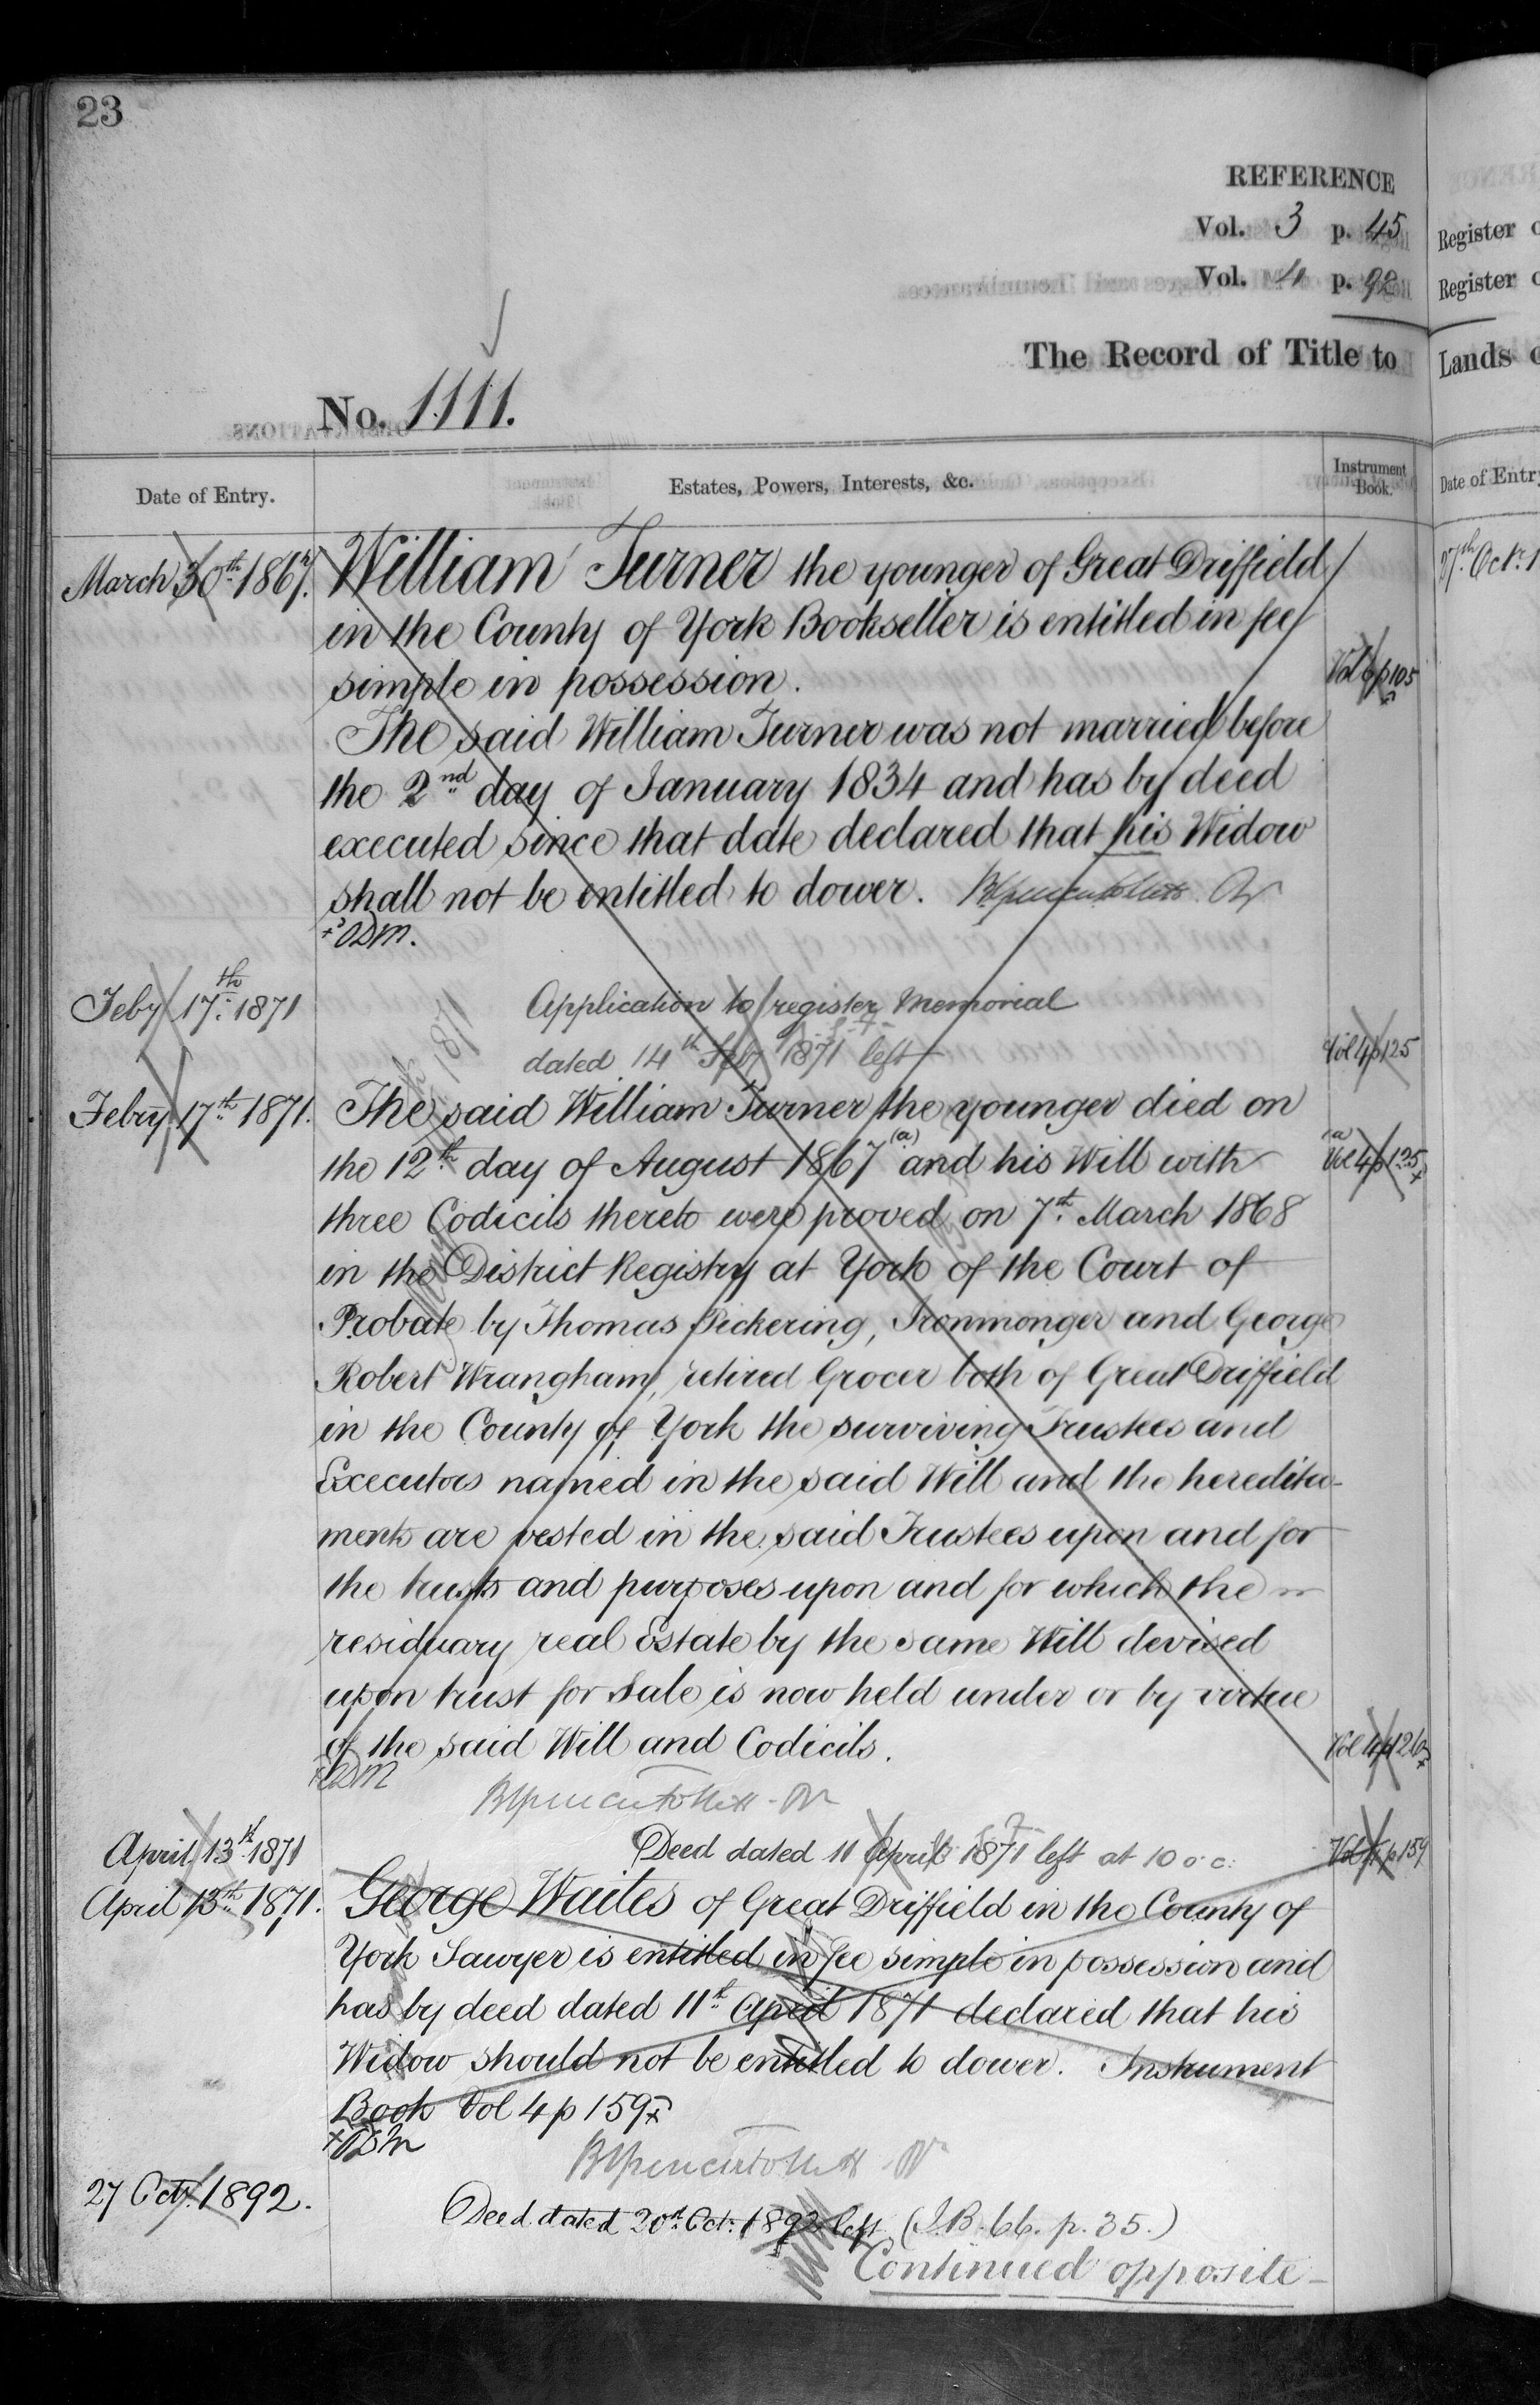 23
REFERENCE
Vol. 3 p. 45
Vol. 4 p. 92
The Record of Title to
No. 1111.
Date of Entry.
Estates, Powers, Interests, &c.
Instrument Book.
March 30th 1867. William Turner the younger of Great Driffield
in the County of York Bookseller is entitled in fee
simple in possession. Vol 6 p 105
The said William Turner was not married before
the 2nd day of January 1834 and has by deed
executed since that date declared that his Widow
shall not be entitled to dower.
Feby 17th 1871 Application to register Memorial
dated 14th Feby 1871 left Vol 4 p 125
Febry 17th 1871. The said William Turner the younger died on
the 12th day of August 1867 (a) and his Will with (a) Vol 4 p 125
three Codicils thereto were proved on 7th March 1868
in the District Registry at York of the Court of
Probate by Thomas Pickering, Ironmonger and George
Robert Wrangham, retired Grocer both of Great Driffield
in the County of York the surviving Trustees and
Executors named in the said Will and the heredita-
ments are vested in the said Trustees upon and for
the trusts and purposes upon and for which the
residuary real Estate by the same Will devised
upon trust for Sale is now held under or by virtue
of the said Will and Codicils. Vol 4 p 126
April 13th 1871 Deed dated 11 April 1871 left at 10 o.c. Vol 4 p 159
April 13th 1871. George Waites of Great Driffield in the County of
York Sawyer is entitled in fee simple in possession and
has by deed dated 11th April 1871 declared that his
Widow should not be entitled to dower. Instrument
Book Vol 4 p 159
27 Oct. 1892. Deed dated 20th Oct: 1892 left (I.B. 66. p. 35.)
Continued opposite
Register
Register
Lands
Date of Entry
27th Octr. 1